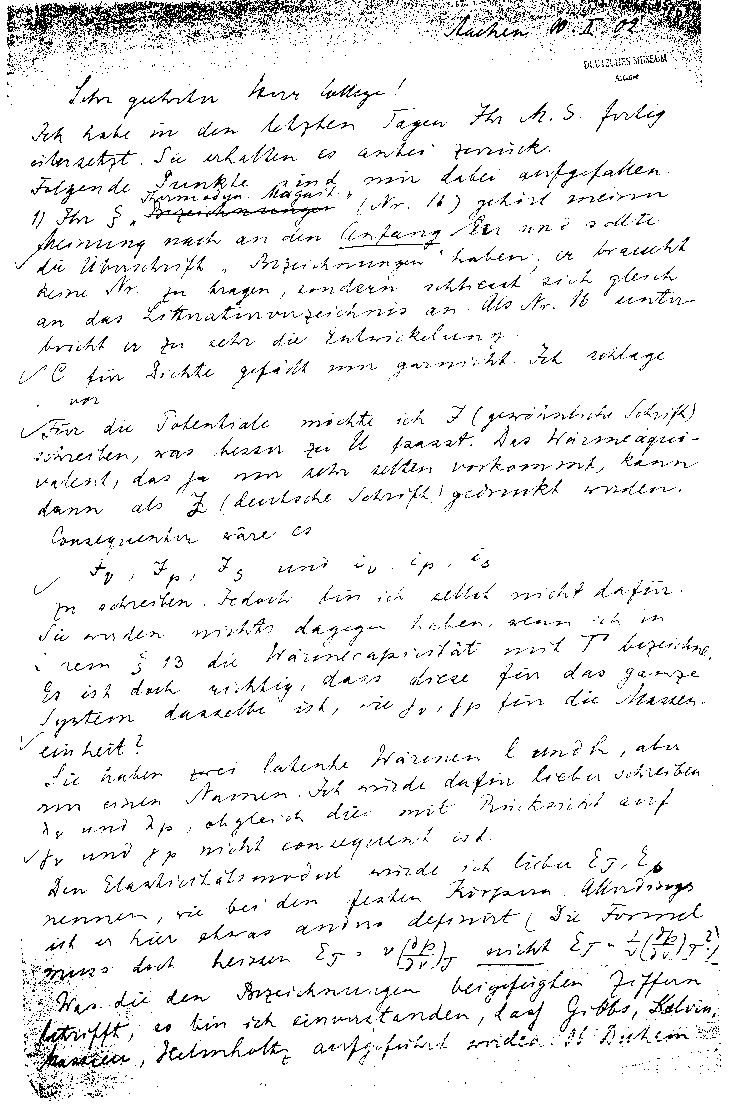 Aachen 10. II. 02
DEUTSCHES MUSEUM
Sehr geehrter Herr College!
Ich habe in den letzten Tagen Ihr M. S. fertig
übersetzt. Sie erhalten es anbei zurück.
Folgende Punkte sind mir dabei aufgefallen.
1) Ihr § „Bezeichnungen" (Nr. 16) gehört meiner
Meinung nach an den Anfang und sollte
die Überschrift „Bezeichnungen" haben; er braucht
keine Nr. zu tragen, sondern schliesst sich gleich
an das Litteraturverzeichnis an. Als Nr. 16 unter-
bricht er zu sehr die Entwickelung.
C für Dichte gefällt mir garnicht. Ich schlage
vor
Für die Potentiale möchte ich F (gewöhnliche Schrift)
schreiben, was besser zu U passt. Das Wärmeäqui-
valent, das ja nur sehr selten vorkommt, kann
dann als (deutsche Schrift) gedruckt werden.
Consequenter wäre es
und
zu schreiben. Jedoch bin ich selbst nicht dafür.
Sie werden nichts dagegen haben, wenn ich in
Ihrem § 13 die Wärmecapicität mit Γ bezeichne.
Es ist doch richtig, dass diese für das ganze
System dasselbe ist, wie γv, γp für die Massen-
einheit?
Sie haben zwei latente Wärmen l und h, aber
nur einen Namen. Ich würde dafür lieber schreiben
λv und λp, obgleich dies mit Rücksicht auf
γv und γp nicht consequent ist.
Den Elasticitätsmodul würde ich lieber
nennen, wie bei den festen Körpern. Allerdings
ist er hier etwas anders definirt (Die Formel
muss doch heissen E_T = v(∂p/∂v)_T nicht E_T = 1/v(∂p/∂v)_T ?)
Was die den Bezeichnungen beigefügten Ziffern
betrifft, so bin ich einverstanden, dass Gibbs, Kelvin,
Massieu, Helmholtz aufgeführt werden. Ob Duhem